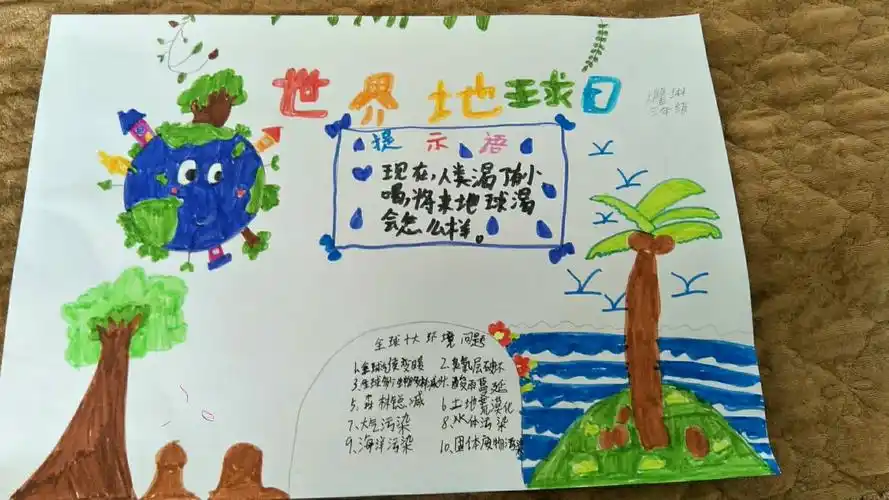 世界地球日
三年级
提示语
现在,人类渴了有小
喝,将来地球渴
会怎么样。
全球十大环境问题
1.全球气候变暖 2.臭氧层破坏
3.全球生物多样减少 4.酸雨蔓延
5.森林锐减 6.土地荒漠化
7.大气污染 8.水体污染
9.海洋污染 10.固体废物污染